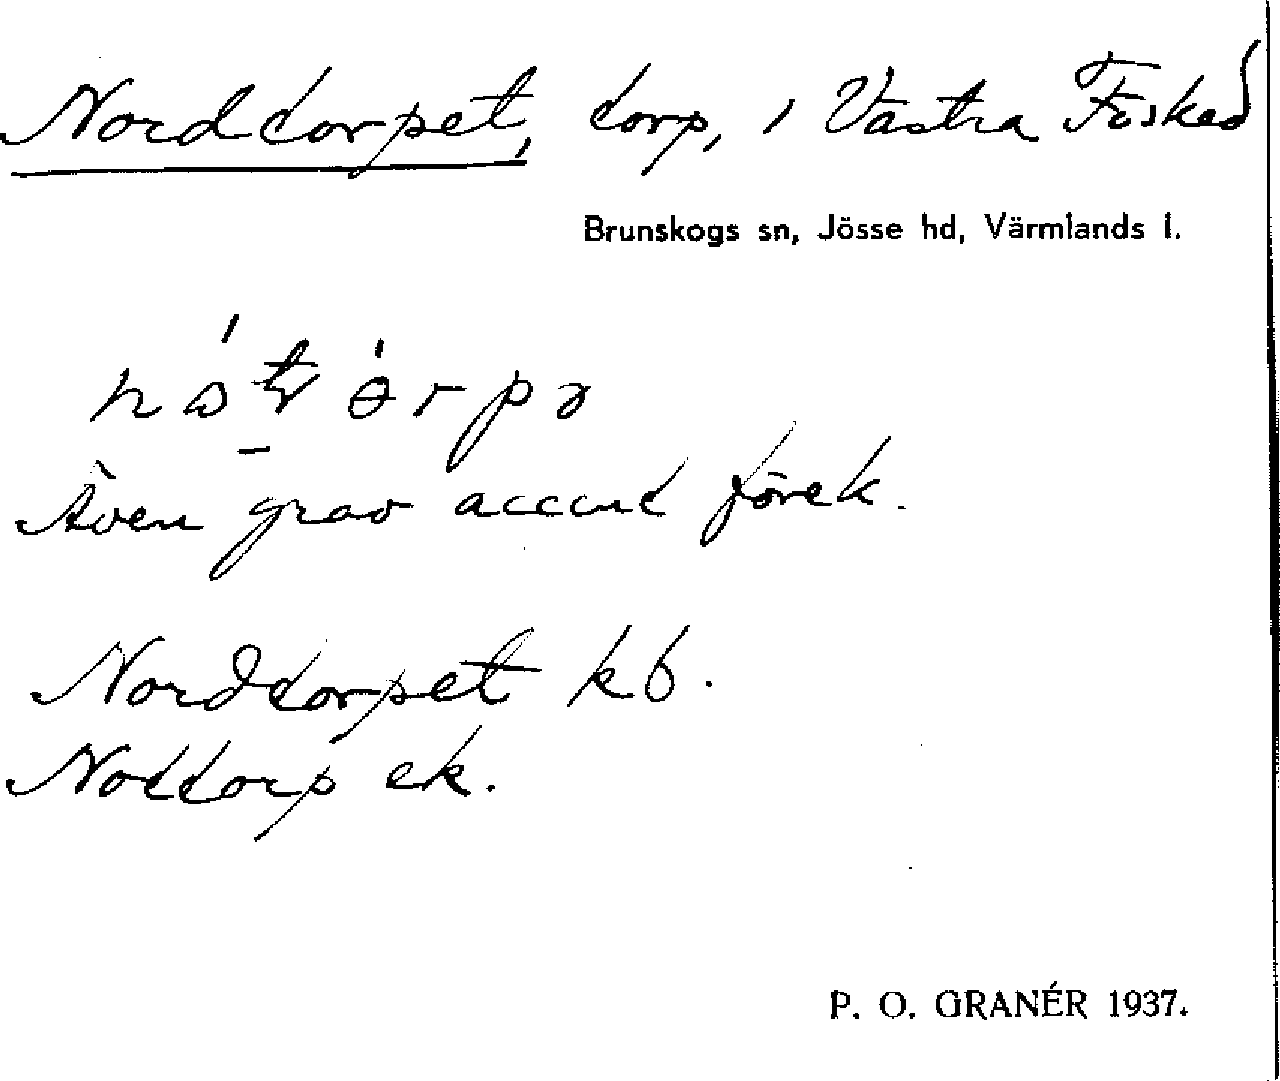 Norddorpet, torp, i Västra Fiskad
Brunskogs sn, Jösse hd, Värmlands l.
Även grav accent förek.
Nordtorpet kb.
Nottorp ek.
P. O. GRANÉR 1937.